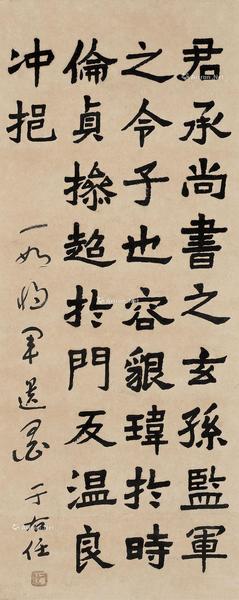 君承尚書之玄孫監軍
之令子也容貌瑋扵時
倫貞操超扵門友温良
冲挹
一如将军
于右任